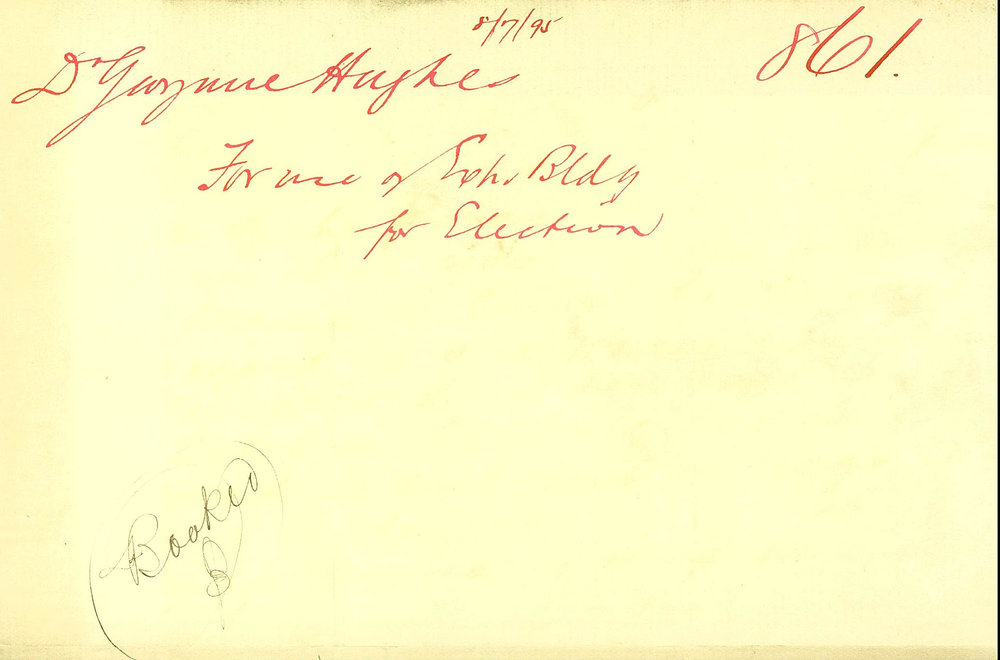 8/7/95
861.
Dr Gwynne Hughes
For use of Exh. Bldg
for Election
Booked